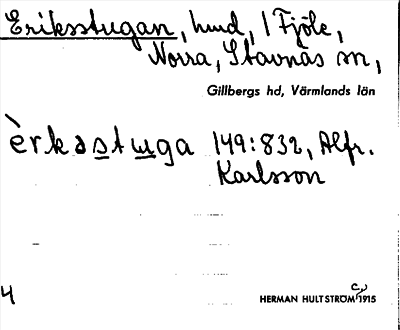 Eriksstugan, hmd, i Fjöle,
Norra, Stavnäs sn,
Gillbergs hd, Värmlands län
èrkastuga 149:832, Alfr.
Karlsson
4
HERMAN HULTSTRÖM 1915